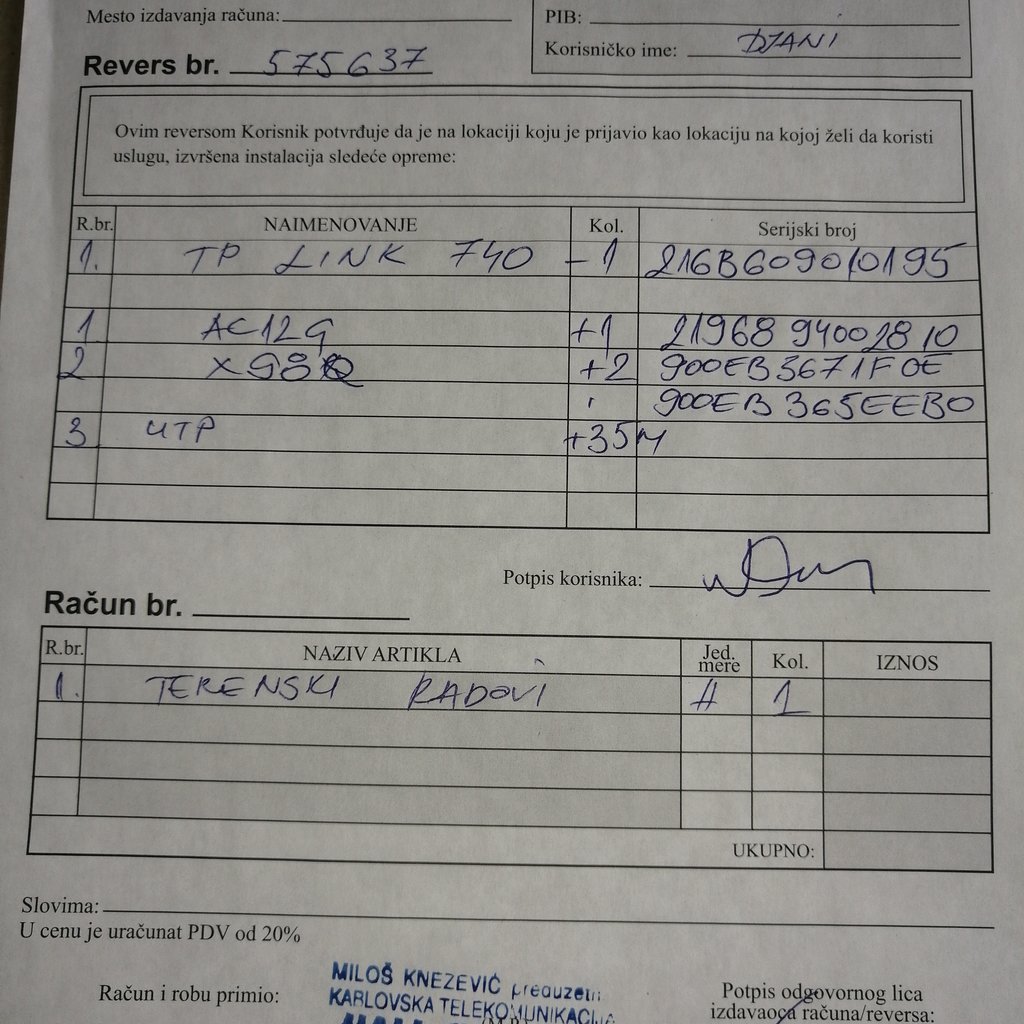 Mesto izdavanja računa:
PIB:
Korisničko ime: DJANI
Revers br. 575637
Ovim reversom Korisnik potvrđuje da je na lokaciji koju je prijavio kao lokaciju na kojoj želi da koristi
uslugu, izvršena instalacija sledeće opreme:
R.br. NAIMENOVANJE Kol. Serijski broj
1. TP LINK 740 -1 216B609010195
1 AC12G +1 21968 94002810
2 X98 +2 900EB3671F0E
900EB365EEB0
3 UTP +35M
Potpis korisnika:
Račun br.
R.br. NAZIV ARTIKLA Jed. mere Kol. IZNOS
1. TERENSKI RADOVI H 1
UKUPNO:
Slovima:
U cenu je uračunat PDV od 20%
Račun i robu primio:
MILOŠ KNEZEVIĆ preduzetn
KARLOVSKA TELEKOMUNIKACIJA
Potpis odgovornog lica
izdavaoca računa/reversa: